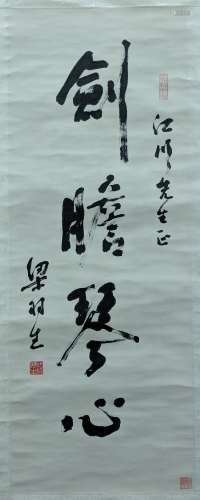 江順先生正
劍膽琴心
梁羽生